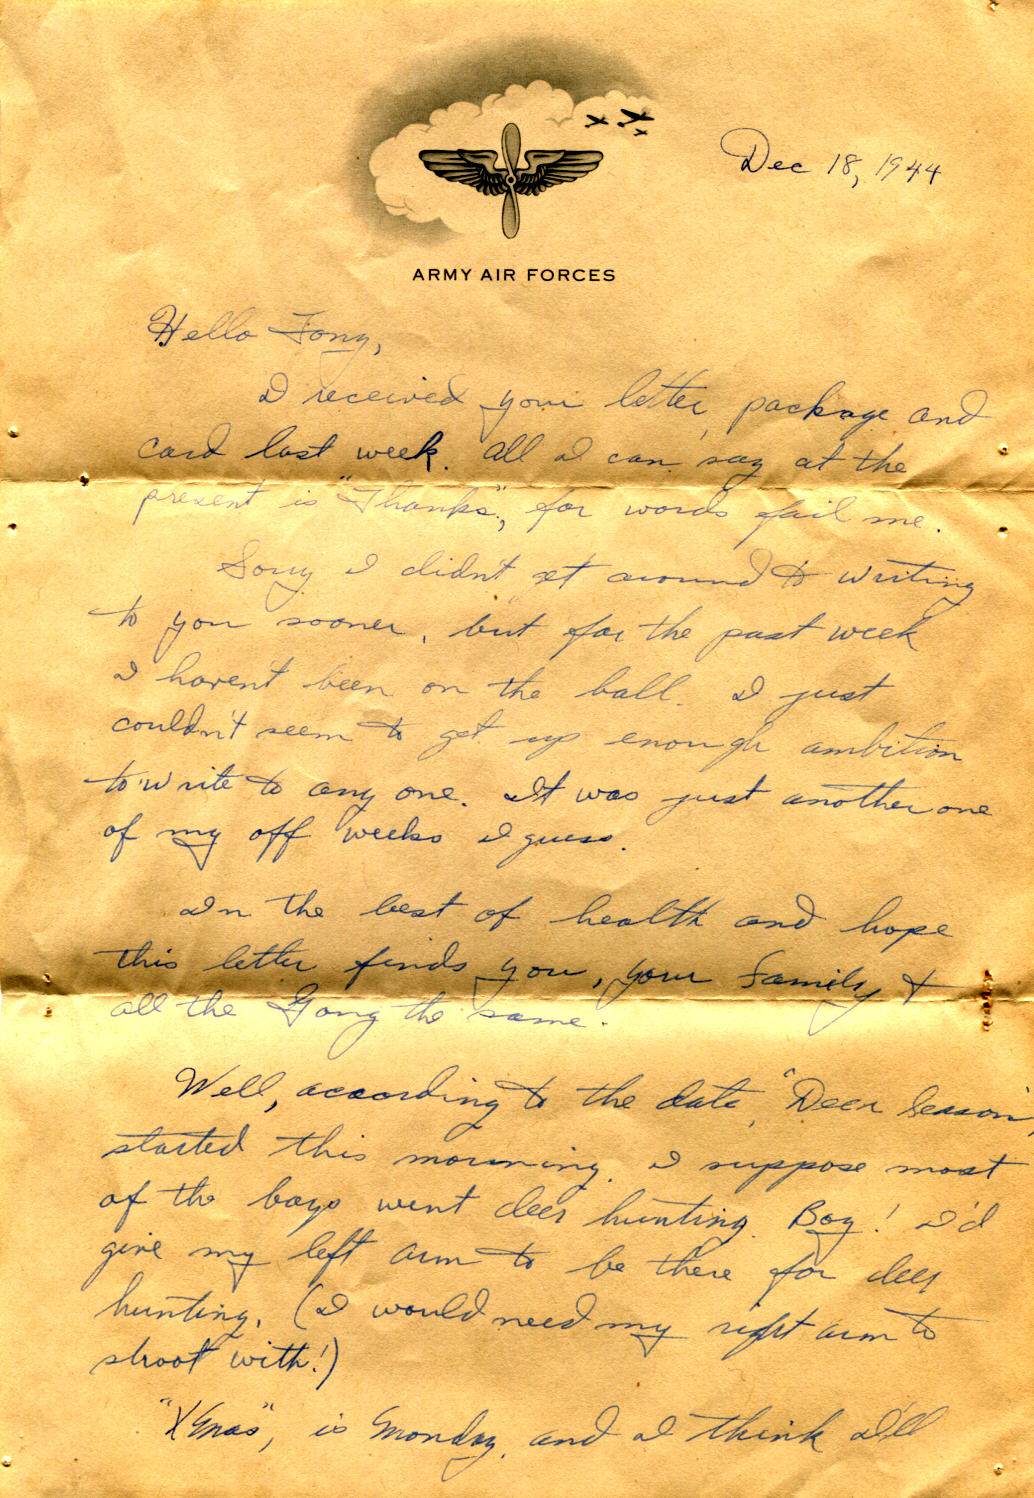 Dec 18, 1944
ARMY AIR FORCES
Hello Tony,
I received your letter, package and
card last week. All I can say at the
present is "Thanks", for words fail me.
Sorry I didn't get around to writing
to you sooner, but for the past week
I haven't been on the ball. I just
couldn't seem to get up enough ambition
to write to any one. It was just another one
of my off weeks I guess.
In the best of health and hope
this letter finds you, your family &
all the Gang the same.
Well, according to the date, "Deer Season"
started this morning. I suppose most
of the boys went deer hunting. Boy! I'd
give my left arm to be there for deer
hunting. (I would need my right arm to
shoot with!)
"Xmas", is Monday, and I think I'll